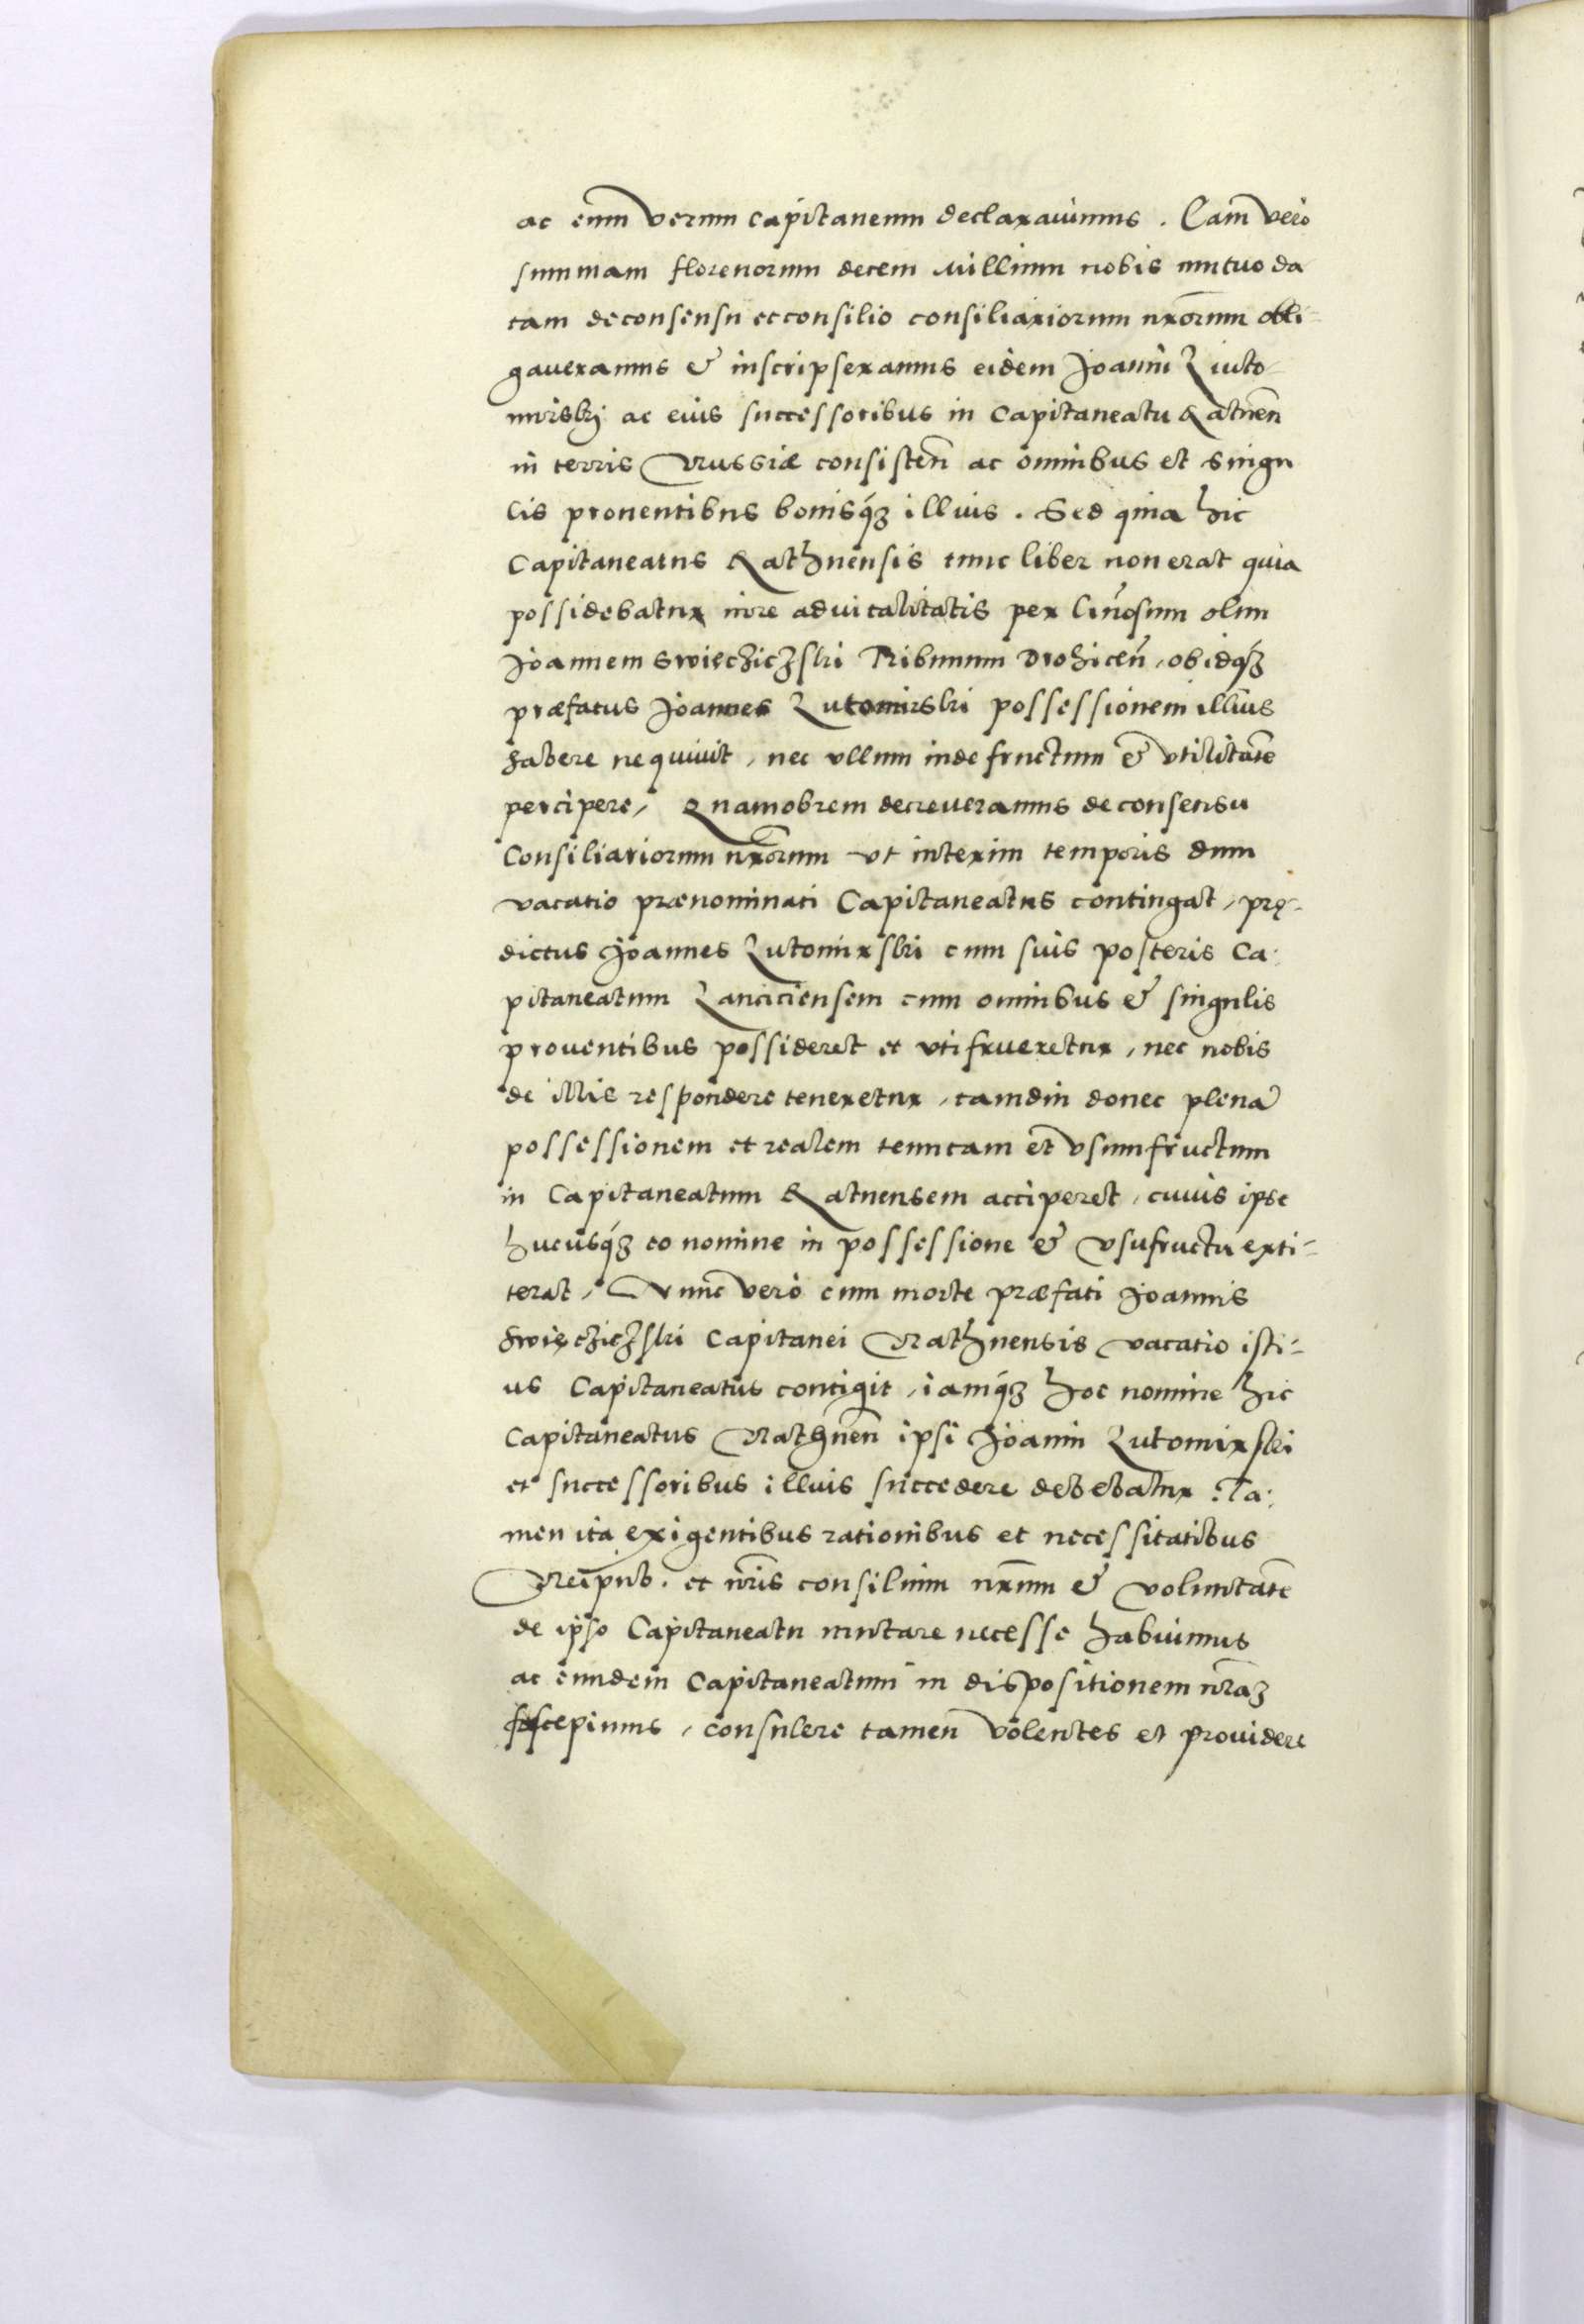 ac eum verum capitaneum declaravimus. Eam vero
summam florenorum decem millium nobis mutuo da
tam de consensu et consilio consiliariorum nrorum obli-
gaveramus & inscripseramus eidem Joanni Liuto-
mirski ac eius successoribus in Capitaneatu Ratnen
in terris Russiæ consisten ac omnibus et singu
lis proventibus bonisq; illius. Sed quia hic
Capitaneatus Rathnensis tunc liber non erat quia
possidebatur iure advitalitatis per Gnosum olim
Joannem Swięcziczski Tribunum Drohicen, ob idq;
præfatus Joannes Lutomirski possessionem illius
habere nequivit, nec ullum inde fructum & vtilitatē
percipere, Quamobrem decreueramus de consensu
Consiliariorum nrorum vt interim temporis dum
vacatio prænominati Capitaneatus contingat, prę-
dictus Joannes Lutomirski cum suis posteris Ca-
pitaneatum Lanciciensem cum omnibus & singulis
proventibus possideret et vtifrueretur, nec nobis
de illis respondere teneretur, tamdiu donec plenā
possessionem et realem tenutam et vsumfructum
in Capitaneatum Ratnensem acciperet, cuius ipse
hucusq; eo nomine in possessione & vsufructu exti-
terat, Nunc vero cum morte præfati Joannis
Swięcziczski Capitanei Rathnensis vacatio isti-
us Capitaneatus contigit, iamq; hoc nomine hic
Capitaneatus Rathnen ipsi Joanni Lutomirski
et successoribus illius succedere debebatur. Ta-
men ita exigentibus rationibus et necessitatibus
Reipub. et nris consilium nrum & voluntatē
de ipso Capitaneatu mutare necesse habuimus
ac eundem Capitaneatum in dispositionem nraʒ
suscepimus, consulere tamen volentes et providere